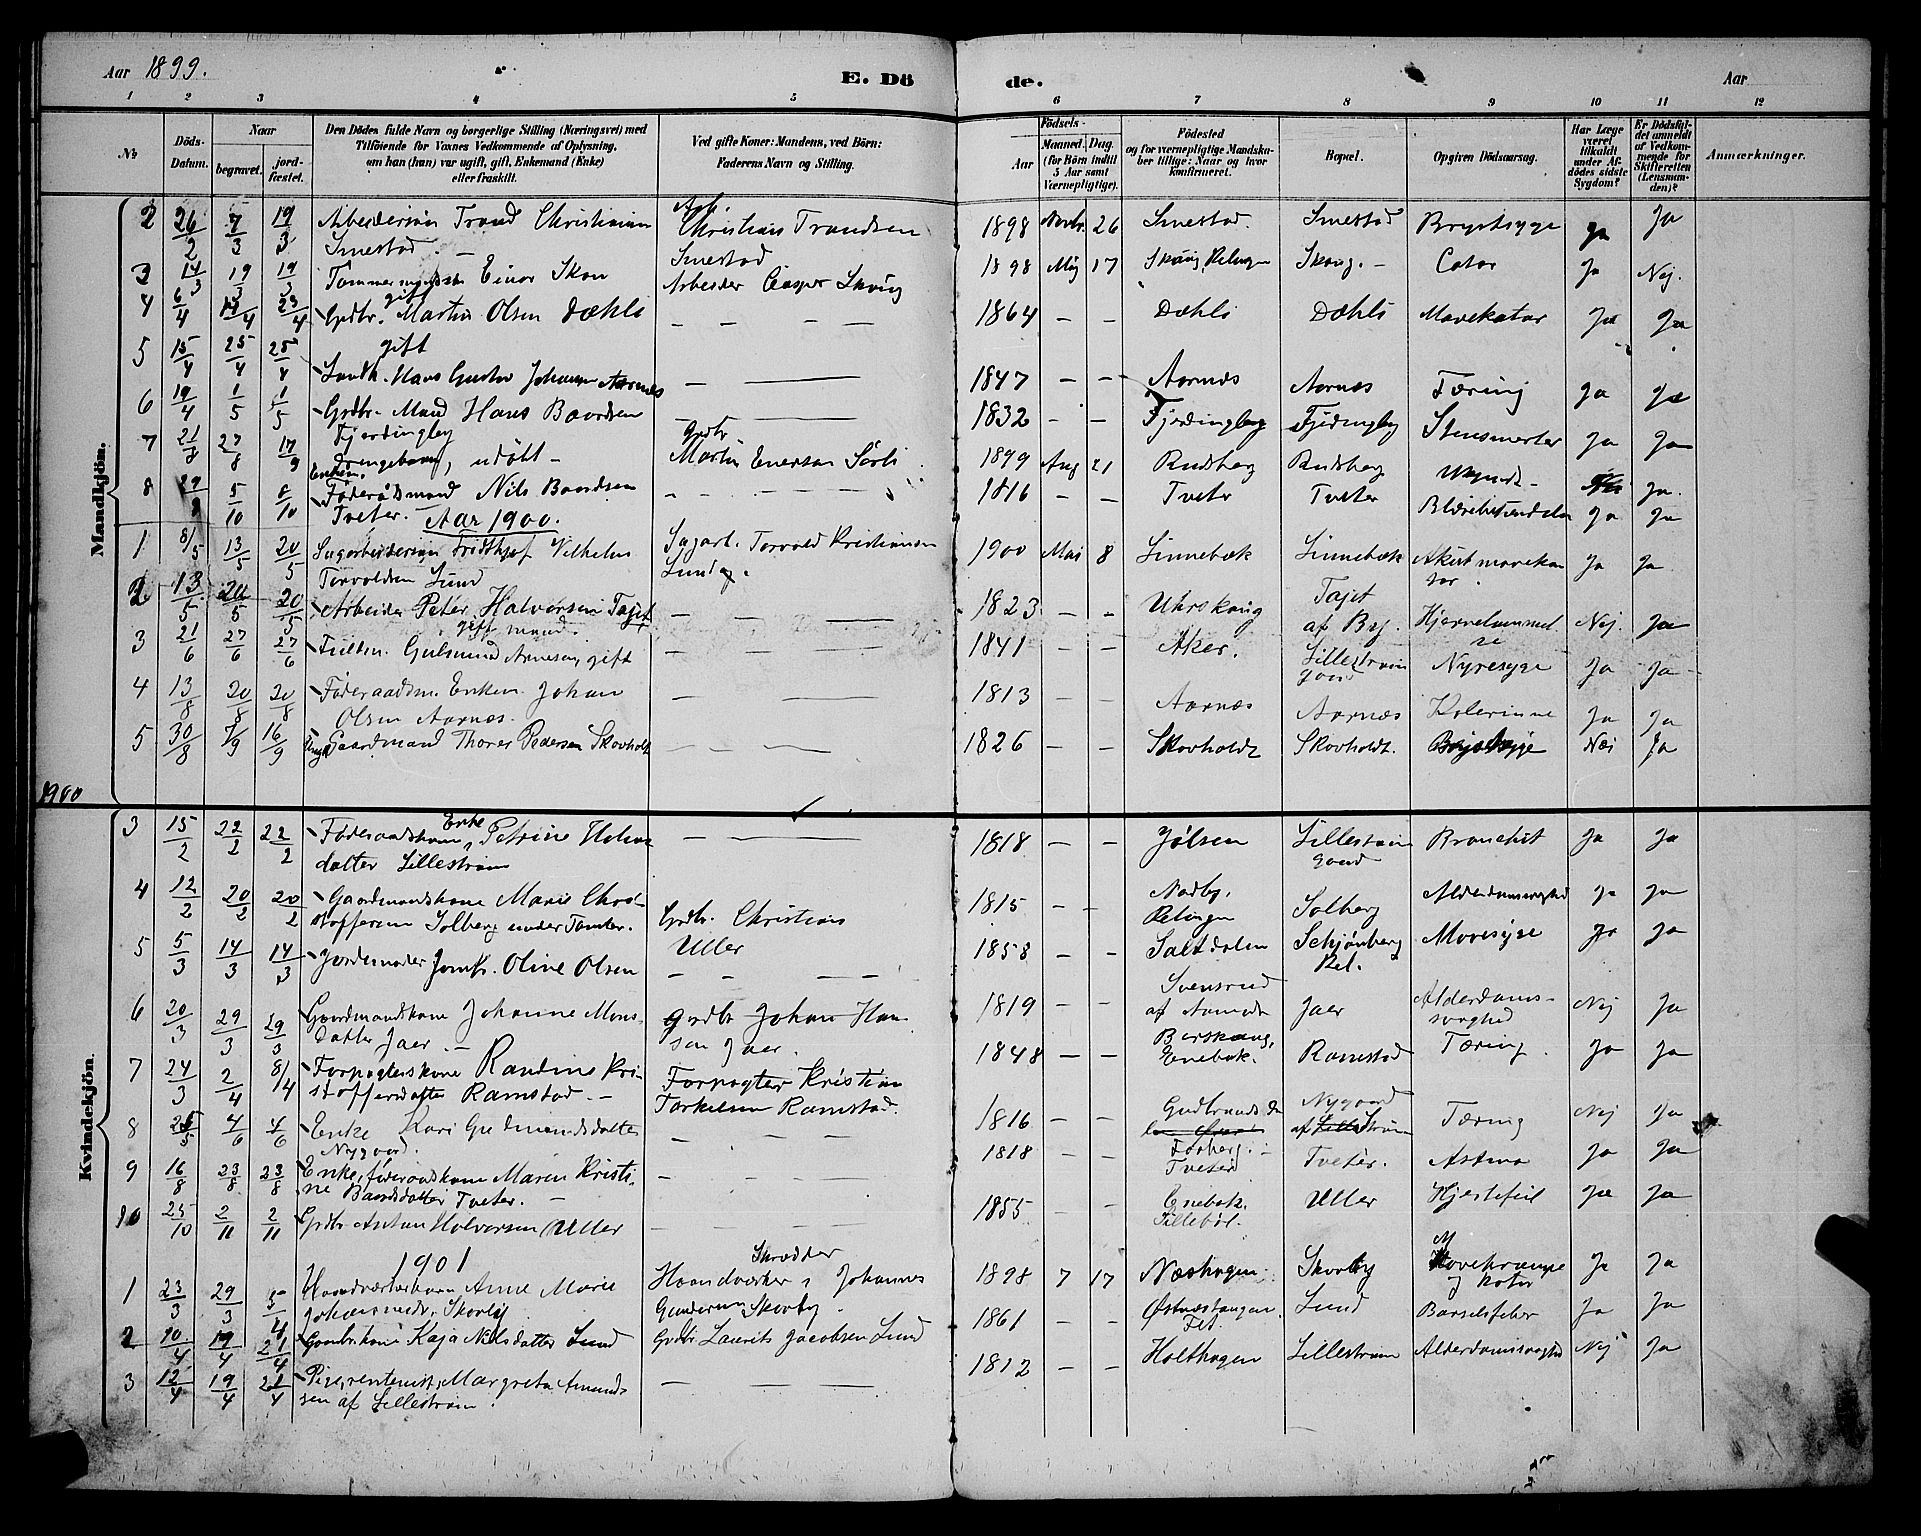 Aar 1899.
E. Dö
de.
Aar
1 2 3 4 5 6 7 8 9 10 11 12
No
Döds-Datum.
Naar
begravet.
jord-fæstet.
Den Dödes fulde Navn og borgerlige Stilling (Næringsvei) med
Tilföiende for Voxnes Vedkommende af Oplysning,
om han (hun) var ugift, gift, Enkemand (Enke)
eller fraskilt.
Ved gifte Koner: Mandens, ved Börn:
Faderens Navn og Stilling.
Födsels-
Aar
Maaned. Dag.
(for Börn indtil
5 Aar samt
Værnepligtige).
Födested
og for værnepligtige Mandska-
ber tillige: Naar og hvor
konfirmeret.
Bopæl.
Opgiven Dödsaarsag.
Har Læge
været
tilkaldt
under Af-
dödes sidste
Sygdom?
Er Dödsfal-
det anmeldt
af Vedkom-
mende for
Skifteretten
(Lensman-
den)?
Anmærkninger.
Mandkjön.
2 26/2 7/3 19/3 Arbeidersön Trond Christiansen Arb. Christian Trondsen 1898 Novbr. 26 Smestad. Smestad Brystsyge Ja Ja
Smestad. — Smestad
3 14/3 19/3 19/3 Einar Arbeider Casper 1898 Maj 17 Skaug. — Catar Ja Nej.
4 6/4 14/4 23/4 gift
Grdbr. Martin Olsen Dæhli — — — — 1864 — — Dæhli Dæhli Mavekatar Ja Ja
5 15/4 25/4 25/4 gift
Hans Gustav Johansen Aarnæs — — 1847 — — Aarnæs Aarnæs Tæring Ja Ja
6 19/4 1/5 1/5 Grdbr. Mand Hans Baardsen — — 1832 — — Fjerdingby Fjerdingby Stensmerter Ja Ja
Fjerdingby
7 21/8 27/8 17/9 Drengebarn, udöbt — Grdbr
Martin Enersen Sörli 1899 Aug 21 Rudsberg Rudsberg Ukjendt — Ja.
8 5/10 8/10 Enkem.
Föderådsmand Nils Baardsen — — — — 1816 — — Tveter Tveter Ja Ja
Tveter. Aar 1900.
1 8/5 13/5 20/5 Sagarbeidersön Fridthjof Vilhelm Sagarb. Torvald Kristiansen 1900 Mai 8 Linnebæk Linnebæk Akut mavekatar Ja Ja
Torvaldsen Lund Lund.
2 13/5 20/5 20/5 Arbeider Peter Halvorsen Tajet — — 1823 — — Uhrskoug Tajet Nej Ja
gift mand. af By.
3 21/6 27/6 27/6 Gulmund Arnesen, gift — — — 1841 — — Aker. Lillestrøm
gaard Nyresyge Ja Ja
4 13/8 20/8 20/8 Föderaadsm. Enkem. Johan — — 1813 — — Aarnæs Aarnæs Kolerine Ja Ja
Olsen Aarnæs.
5 30/8 9/9 16/9 Gaardmand Thorer Pedersen Skovholt — — — 1826 — — Skovholdt Skovholdt. Brystsyge Nei Ja
1900
Kvindekjön.
3 15/2 22/2 22/2 Enke
Föderaadskone, Petrine Hans — — — 1818 — — Jölsen Lillestrøm
gaard Bronchit Ja Ja
datter Lillestrøm
4 12/2 20/2 20/2 Gaardmandskone Marie Chri- Grdbr. Christian 1815 — — Nordby.
Relingen Solberg Alderdomssvaghed Ja Ja
stoffersen Solberg under Tomter. Uller
5 5/3 14/3 14/3 Jordemoder Jomfr. Oline Olsen — — — — 1858 — — Saltdalen Schjønberg
Rel. Mavesyge Ja Ja
6 20/3 29/3 29/3 Gaardmandskone Johanne Mons- Grdbr Johan Han 1819 — — Svensrud
af Jaer Alderdoms-
svaghed Nej Ja
datter Jaer. — sen Jaer.
7 24/3 2/4 8/4 Forpagterskone Randine Kri- Forpagter Kristian 1848 — — Enebak. Ramstad Tæring. Ja Ja
stoffersdatter Ramstad. — Torkelsen Ramstad.
8 25/5 4/6 4/6 Enke Kari Gudmundsdatter — — — 1816 — — Nygaard Tæring Nej Ja
Nygaard.
9 16/8 23/8 23/8 Enke, föderaadskone Maren Kristi- — — 1818 Tveter Tveter. Astma Ja Ja
ne Baardsdatter Tveter. —
10 25/10 2/11 2/11 Grdbr Anton Halvorsen Uller — — — 1855 — — Enebak. Uller Hjertefeil Ja Ja
1901
1 23/3 29/3 5/4 Anne Marie Skrædder
Haandværker, Johannes 1898 7 17 Næshagen. Skovby Mavekrampe
og katar Ja Ja
Skovby Gundersen Skovby.
2 10/4 19/4 21/4 Kaja Nilsdatter Lund Grdbr Laurits Jacobsen Lund 1861 — — Østnæstangen
Fet. Lund Barselfeber Ja Ja
3 12/4 19/4 21/4 Pige, rentenist, Margrete Amund- — — 1812 — — Holthagen Lillestrøm Alderdomssvaghed Nej Ja
sen af Lillestrøm.